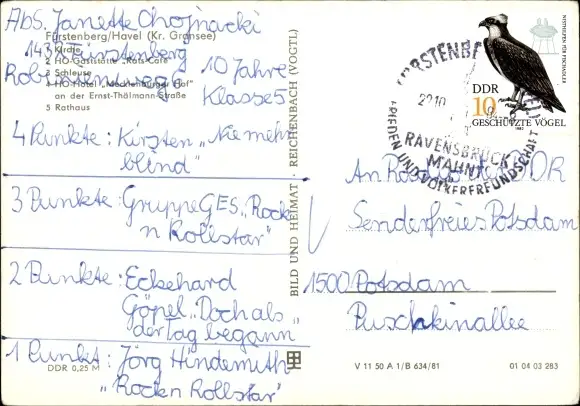 Abs. Janette Chojnacki
Fürstenberg/Havel (Kr. Gransee)
1 Kirche
1432 Fürstenberg
2 HO-Gaststätte "Rats-Café"
3 Schleuse
4 HO-Hotel „Mecklenburger Hof"
an der Ernst-Thälmann-Straße
5 Rathaus
10 Jahre
Klasse 5
4 Punkte: Kirsten „Nie mehr
blind"
3 Punkte: Gruppe GES „Rock
n Rollstar"
2 Punkte: Eckehard
Göpel „Doch als
der Tag begann"
1 Punkt: Jörg Hindemith
„Rock n Rollstar"
DDR 0,25 M
BILD UND HEIMAT REICHENBACH (VOGTL)
DDR
10
GESCHÜTZTE VÖGEL
1982
FÜRSTENBE
RAVENSBRÜCK
MAHNT
FRIEDEN UND VÖLKERFREUNDSCHAFT
An DDR
Senderfreies Potsdam
1500 Potsdam
Puschkinallee
V 11 50 A 1/B 634/81
01 04 03 283